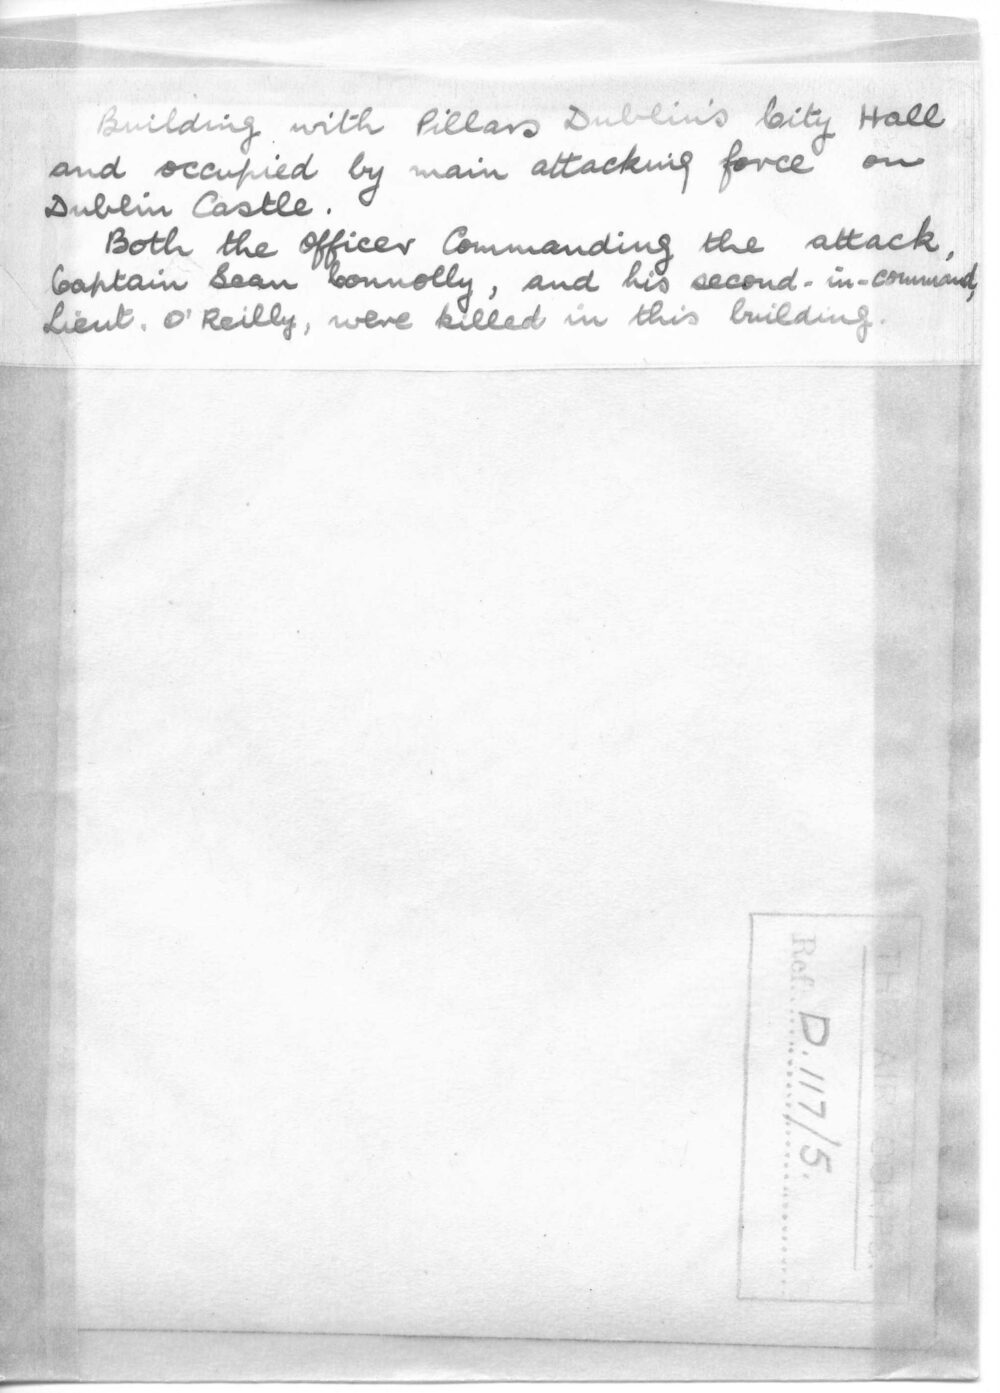 Building with Pillars Dublin's City Hall
and occupied by main attacking force on
Dublin Castle.
Both the Officer Commanding the attack,
Captain Sean Connolly, and his second-in-command,
Lieut. O'Reilly, were killed in this building.
THE
Ref. D.117/5.